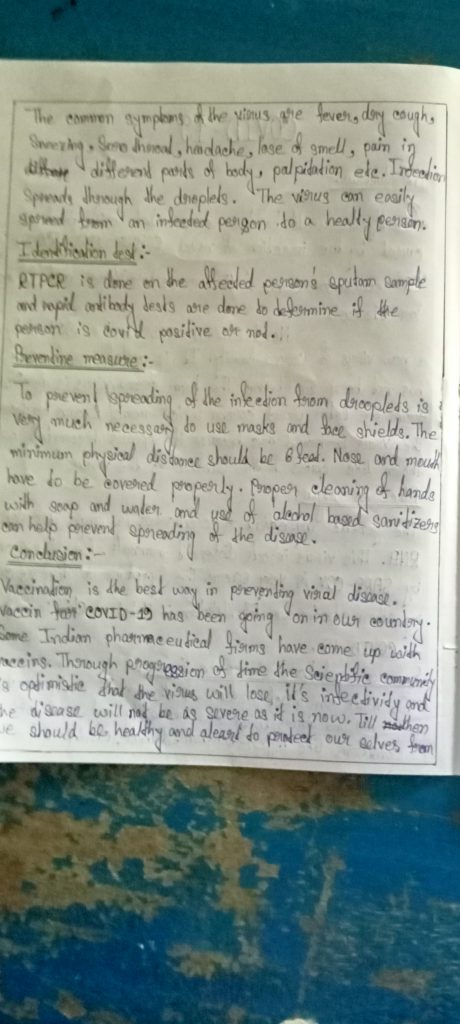 The common symptoms of the virus are fever, dry cough,
Sneezing, Sore throat, headache, lose of smell, pain in
different parts of body, palpitation etc. Infection
Spreads through the droplets. The virus can easily
spread from an infected person to a healty person.
Identification test:-
RTPCR is done on the affected person's sputam sample
and rapid antibody tests are done to determine if the
person is covid positive or not.
Preventine measure:-
To prevent spreading of the infection from droopleds is
very much necessary to use masks and face shields. The
minimum physical distance should be 6 feat. Nose and mouth
have to be covered properly. Proper cleaning of hands
with soap and water and use of alcohol based sanitizers
can help prevent spreading of the disease.
Conclusion:-
Vaccination is the best way in preventing viral disease.
vaccin for COVID-19 has been going on in our country.
Some Indian pharmaceutical firms have come up with
vaccins. Through progression of time the Scientific community
is optimistic that the virus will lose it's infectivity and
he disease will not be as severe as it is now. Till then
we should be healthy and aleart to protect our selves from